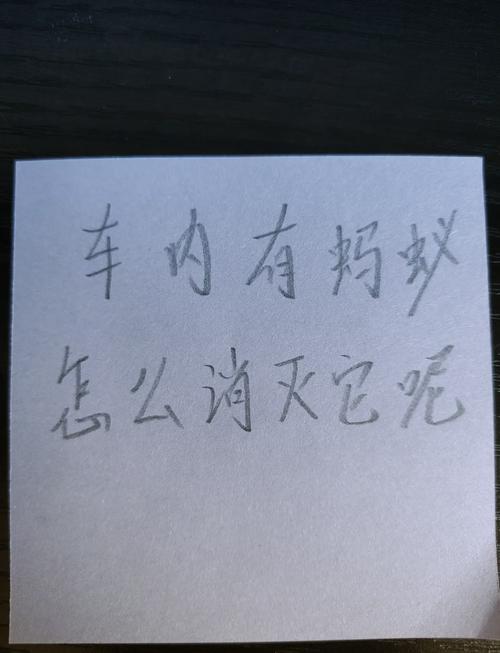 车内有蚂蚁
怎么消灭它呢